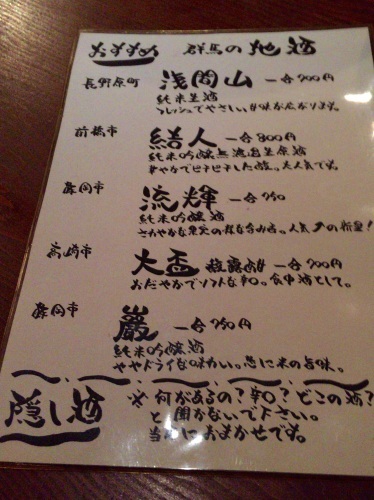 おすすめ 群馬の地酒
長野原町 浅間山 一合700円
純米生酒
フレッシュでやさしい甘味が広がります。
前橋市 結人 一合800円
純米吟醸無濾過生原酒
華やかでピチピチした酸。大人気です。
藤岡市 流輝 一合750
純米吟醸酒
さわやかな果実の様な含み香。人気↗の新星!
高崎市 大盃 一合700円
おだやかでソフトな辛口。食中酒として。
藤岡市 巖 一合750円
純米吟醸酒
ややドライな味わい。急に米の旨味。
隠し酒 ※何があるの?辛口?どこの酒?
と聞かないで下さい。
当店におまかせです。